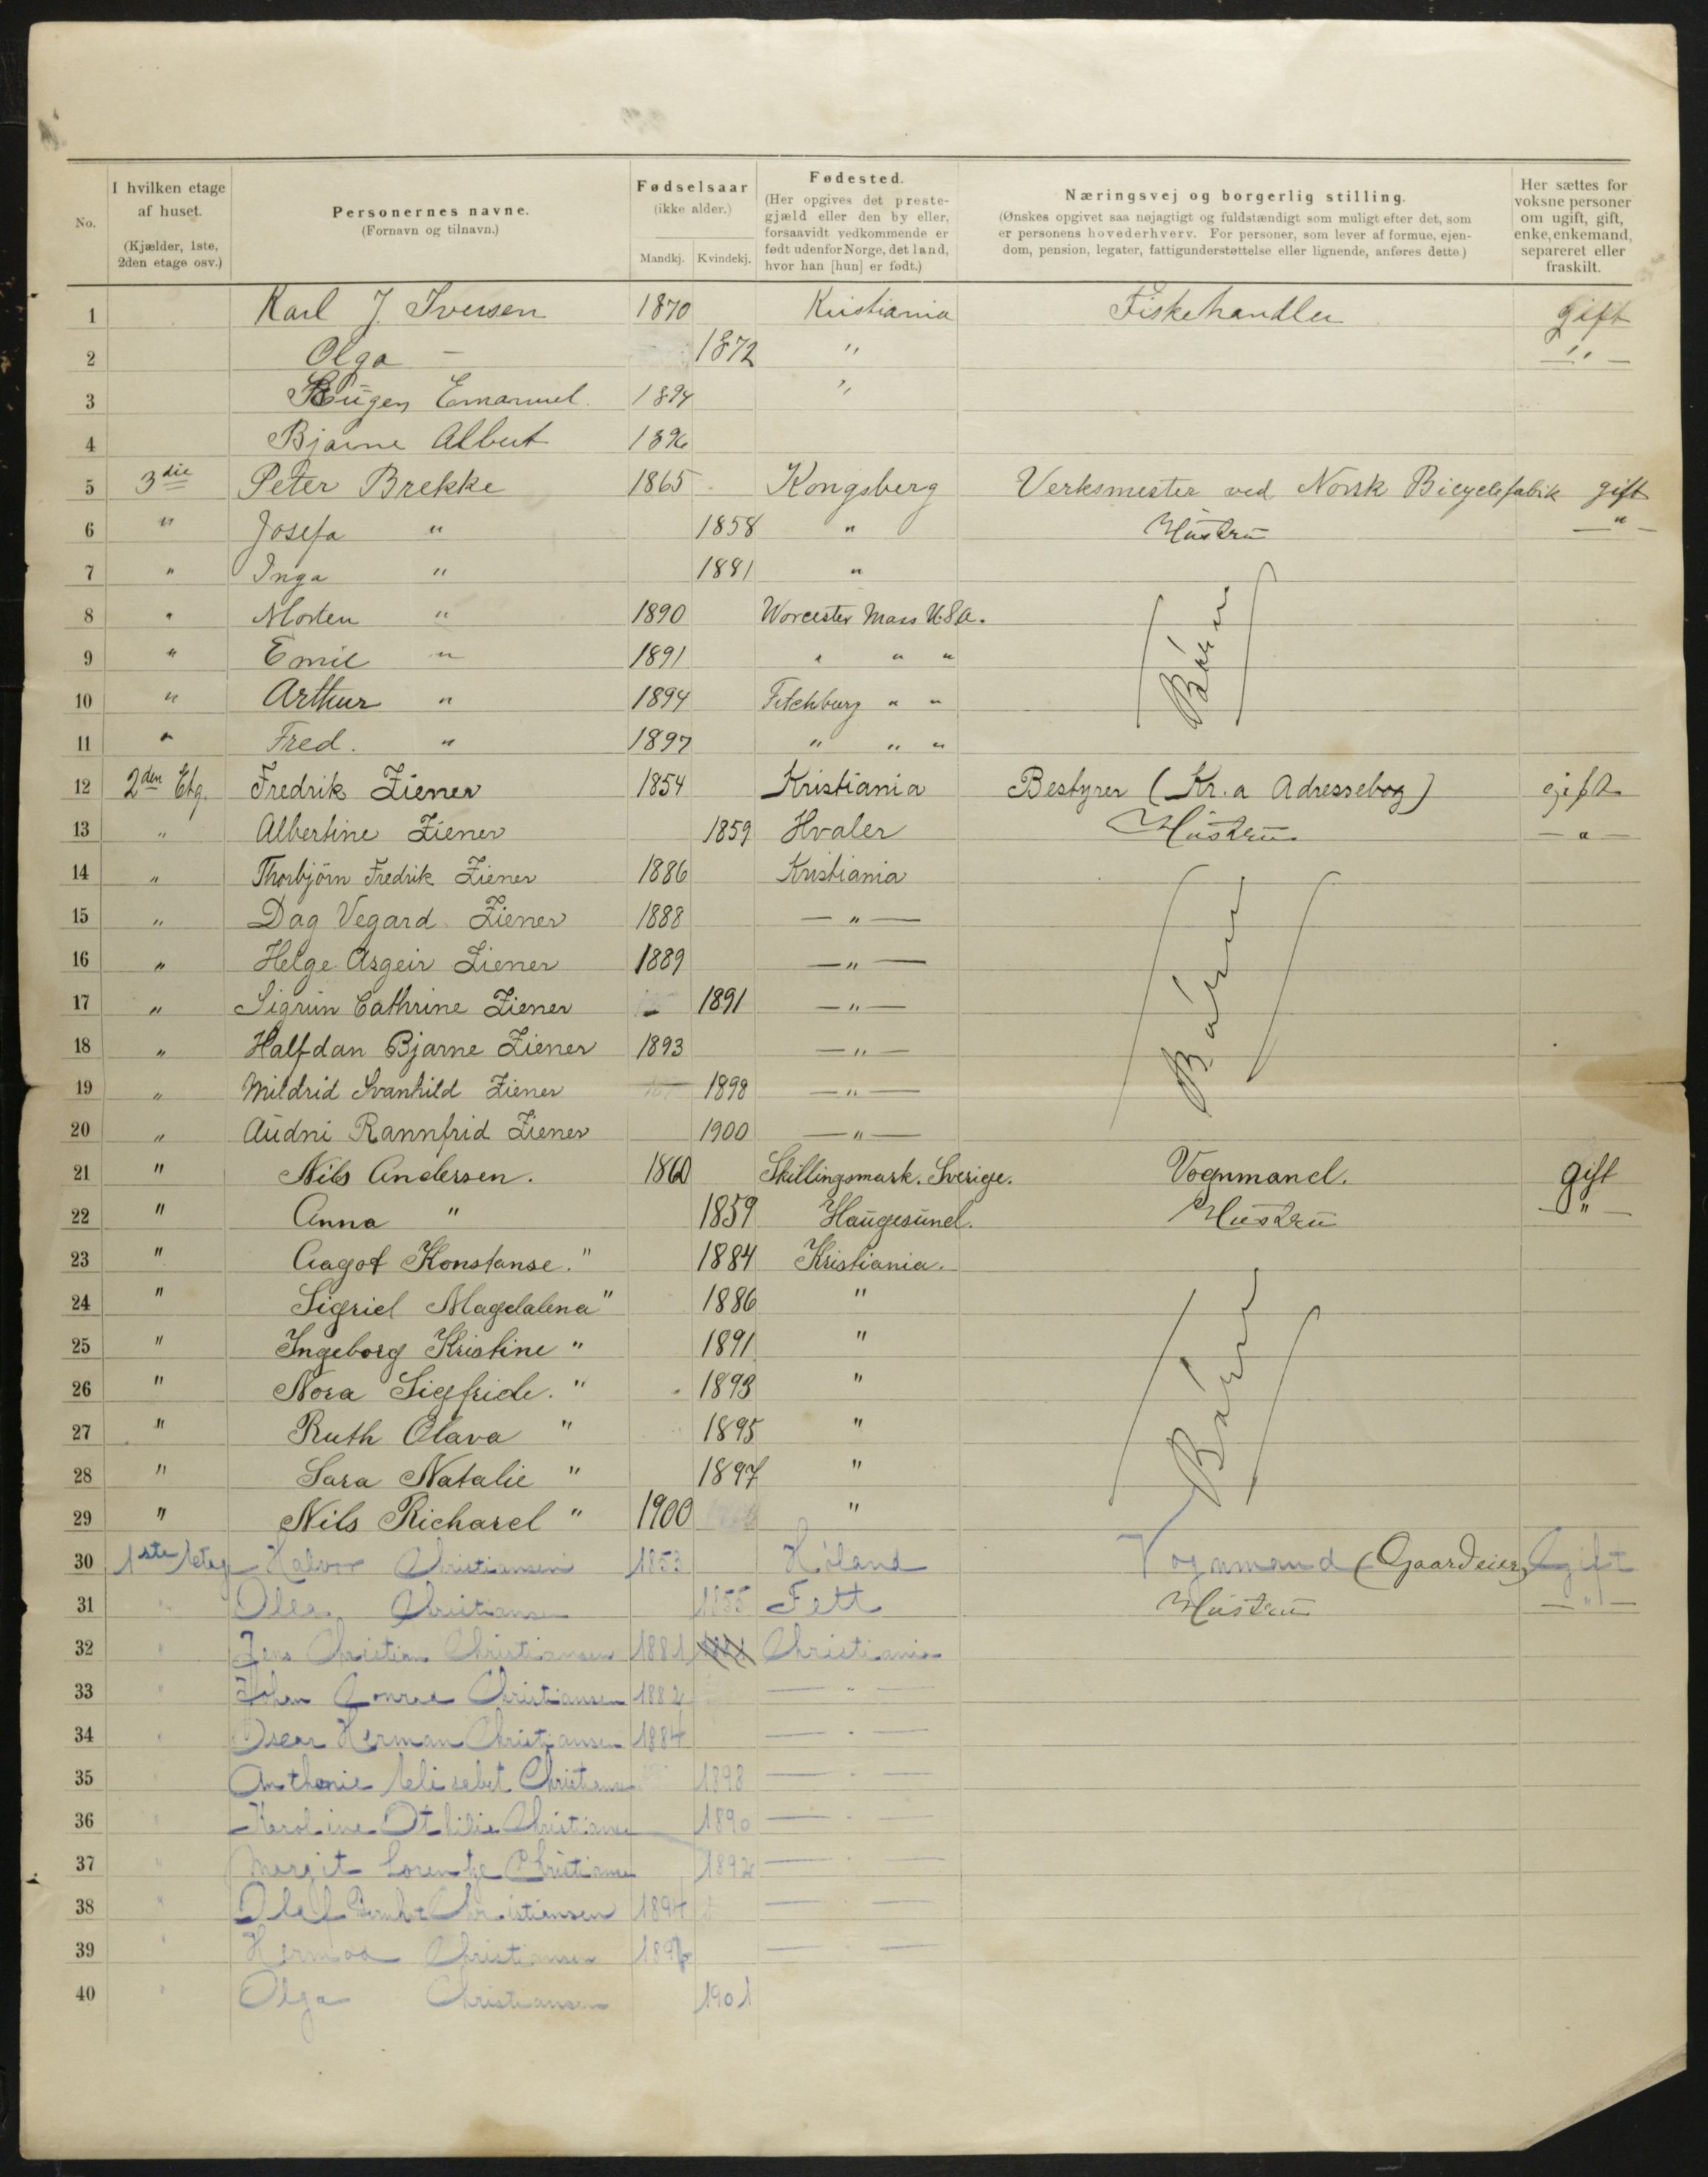 No.
I hvilken etage af huset. (Kjælder, 1ste, 2den etage osv.)
Personernes navne. (Fornavn og tilnavn.)
Fødselsaar (ikke alder.) Mandkj. Kvindekj.
Fødested. (Her opgives det prestegjæld eller den by eller, forsaavidt vedkommende er født udenfor Norge, det land, hvor han [hun] er født.)
Næringsvej og borgerlig stilling. (Ønskes opgivet saa nøjagtigt og fuldstændigt som muligt efter det, som er personens hovederhverv. For personer, som lever af formue, ejendom, pension, legater, fattigunderstøttelse eller lignende, anføres dette)
Her sættes for voksne personer om ugift, gift, enke, enkemand, separeret eller fraskilt.
1 Karl J. Iversen 1870 Kristiania Fiskehandler gift
2 Olga — 1872 " — " —
3 Eugen Emanuel 1894 "
4 Bjarne Albert 1896
5 3die Peter Brekke 1865 Kongsberg Verksmester ved Norsk Bicyclefabik gift
6 " Josefa " 1858 " Hustru — " —
7 " Inga " 1881 "
8 " Morten " 1890 Worcester Mass U.S.A. Børn
9 " Emil " 1891 " " "
10 " Arthur " 1894 Fitchburg " "
11 " Fred. " 1897 " " "
12 2den Etg. Fredrik Ziener 1854 Kristiania Bestyrer (Kr.a Adressebog) gift
13 " Albertine Ziener 1859 Hvaler Hustru — " —
14 " Thorbjörn Fredrik Ziener 1886 Kristiania
15 " Dag Vegard Ziener 1888 — " —
16 " Helge Asgeir Ziener 1889 — " —
17 " Sigrun Cathrine Ziener 1891 — " — Børn
18 " Halfdan Bjarne Ziener 1893 — " —
19 " Mildrid Svanhild Ziener 1898 — " —
20 " Audni Rannfrid Ziener 1900 — " —
21 " Nils Andersen. 1860 Skillingsmark. Sverige. Vognmand. gift
22 " Anna " 1859 Haugesund. Hustru — " —
23 " Aagot Konstanse. " 1884 Kristiania.
24 " Sigrid Magdalena " 1886 "
25 " Ingeborg Kristine " 1891 "
26 " Nora Sigfride. " 1893 " Børn
27 " Ruth Olava " 1895 "
28 " Sara Natalie " 1897 "
29 " Nils Richard " 1900 "
30 1ste etag Halvor Christiansen 1853 Høland Vognmand (Gaardeier) Gift
31 " Christiansen 1855 Fett Hustru — " —
32 " Jens Christian Christiansen 1881 Christiania
33 " Johan Conrad Christiansen 1882 — " —
34 " Oscar Herman Christiansen 1884 — " —
35 Anthonie Elisabet Christianse 1898 — " —
36 " Karoline Othilie Christianse 1890 — " —
37 " Margit Lorentze Christianse 1892 — " —
38 " Olaf Christiansen 1894 — " —
39 " Christiansen 1896 — " —
40 " Olga Christiansen 1901